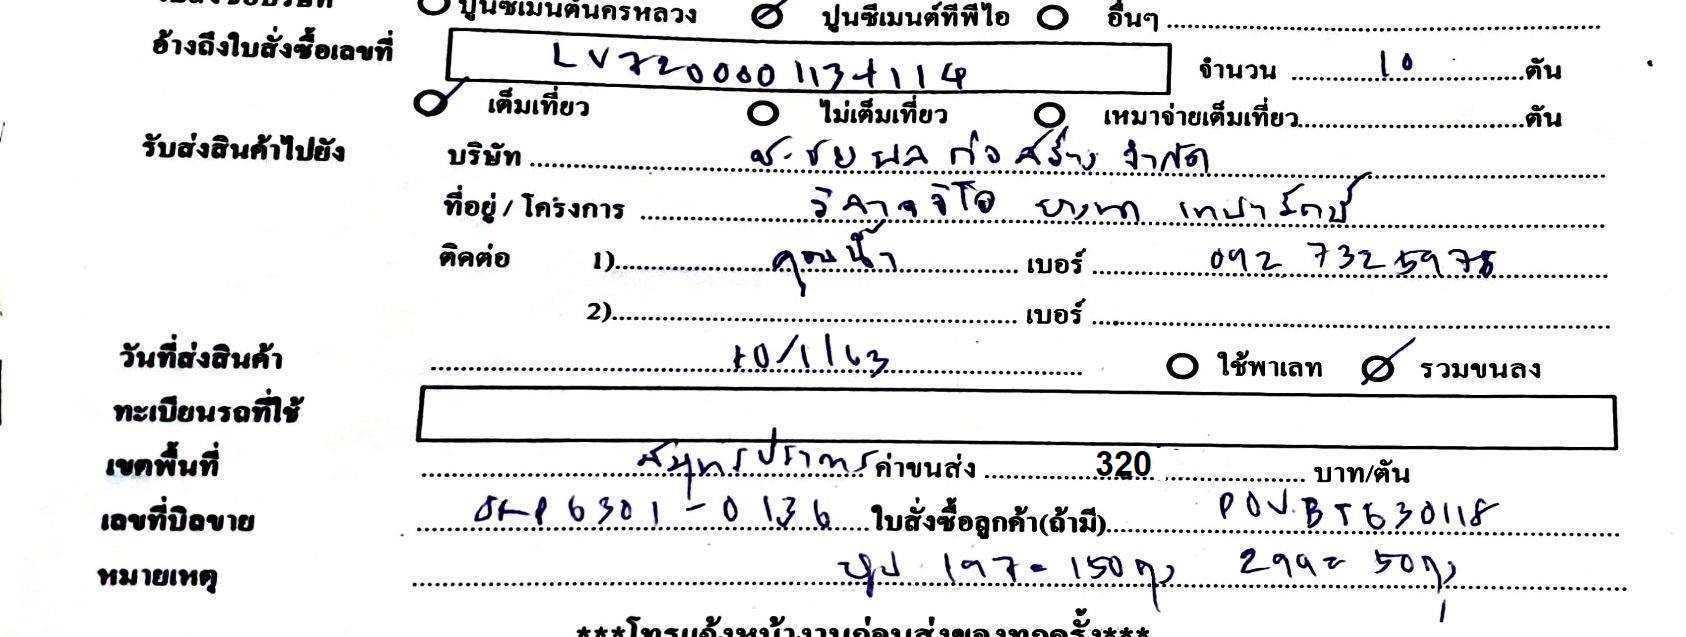 ปูนซีเมนต์นครหลวง ปูนซีเมนต์ทีพีไอ อื่นๆ
อ้างถึงใบสั่งซื้อเลขที่ LV720000113+114 จำนวน 10 ตัน
เต็มเที่ยว ไม่เต็มเที่ยว เหมาจ่ายเต็มเที่ยว ตัน
รับส่งสินค้าไปยัง บริษัท ก่อสร้าง จำกัด
ที่อยู่ / โครงการ บางนา เทพารักษ์
ติดต่อ 1) คุณน้ำ เบอร์ 092 7325978
2) เบอร์
วันที่ส่งสินค้า 10/1/63 ใช้พาเลท รวมขนลง
ทะเบียนรถที่ใช้
เขตพื้นที่ สมุทรปราการ ค่าขนส่ง 320 บาท/ตัน
เลขที่บิลขาย 6301-0136 ใบสั่งซื้อลูกค้า(ถ้ามี) POV.BT630118
หมายเหตุ ปูน 197= 150 ถุง 299= 50 ถุง
***โทรแจ้งหน้างานก่อนส่งของทุกครั้ง***